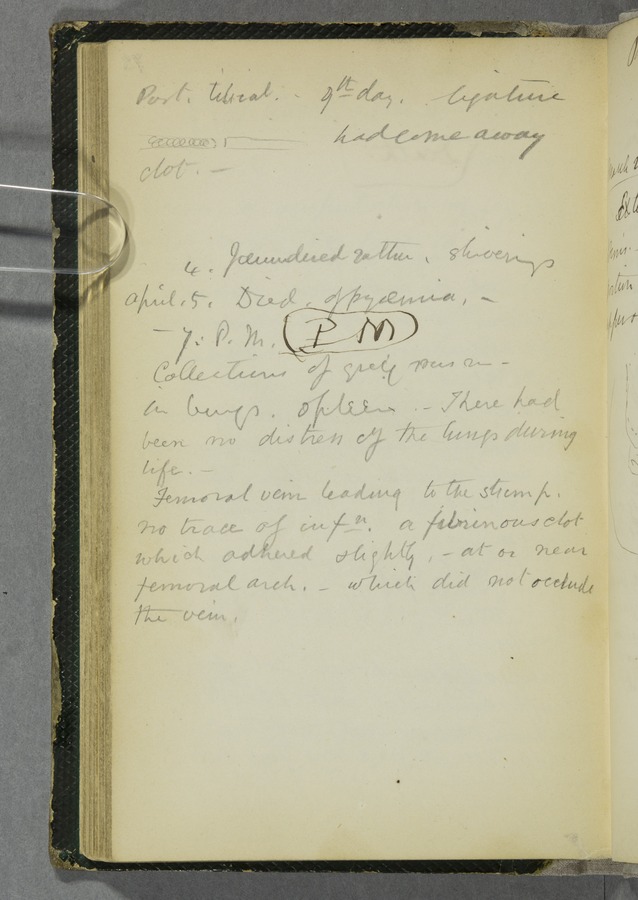 Post. tibial. - 9th day. ligature
had come away
clot. -
4. Jaundiced rather, shiverings
April. 5. Died. of pyæmia, -
- 7. P. M. P M
Collections of greeny pus in -
in lungs. spleen. - There had
been no distress of the lungs during
life. -
Femoral vein leading to the stump.
no trace of infn. a fibrinous clot
which adhered slightly, - at or near
femoral arch. - which did not occlude
the vein.